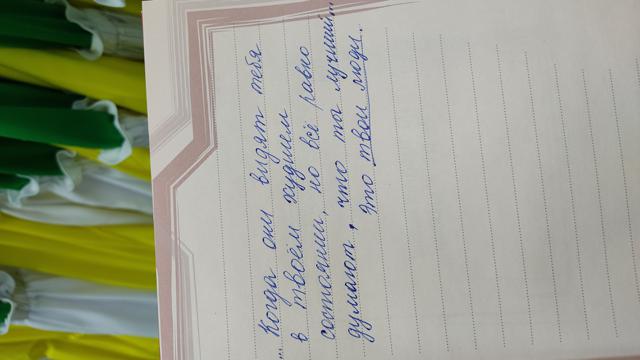 ... Когда они видят тебя
в твоём худшем
состоянии, но всё равно
думают, что ты лучший...
Это твои люди.